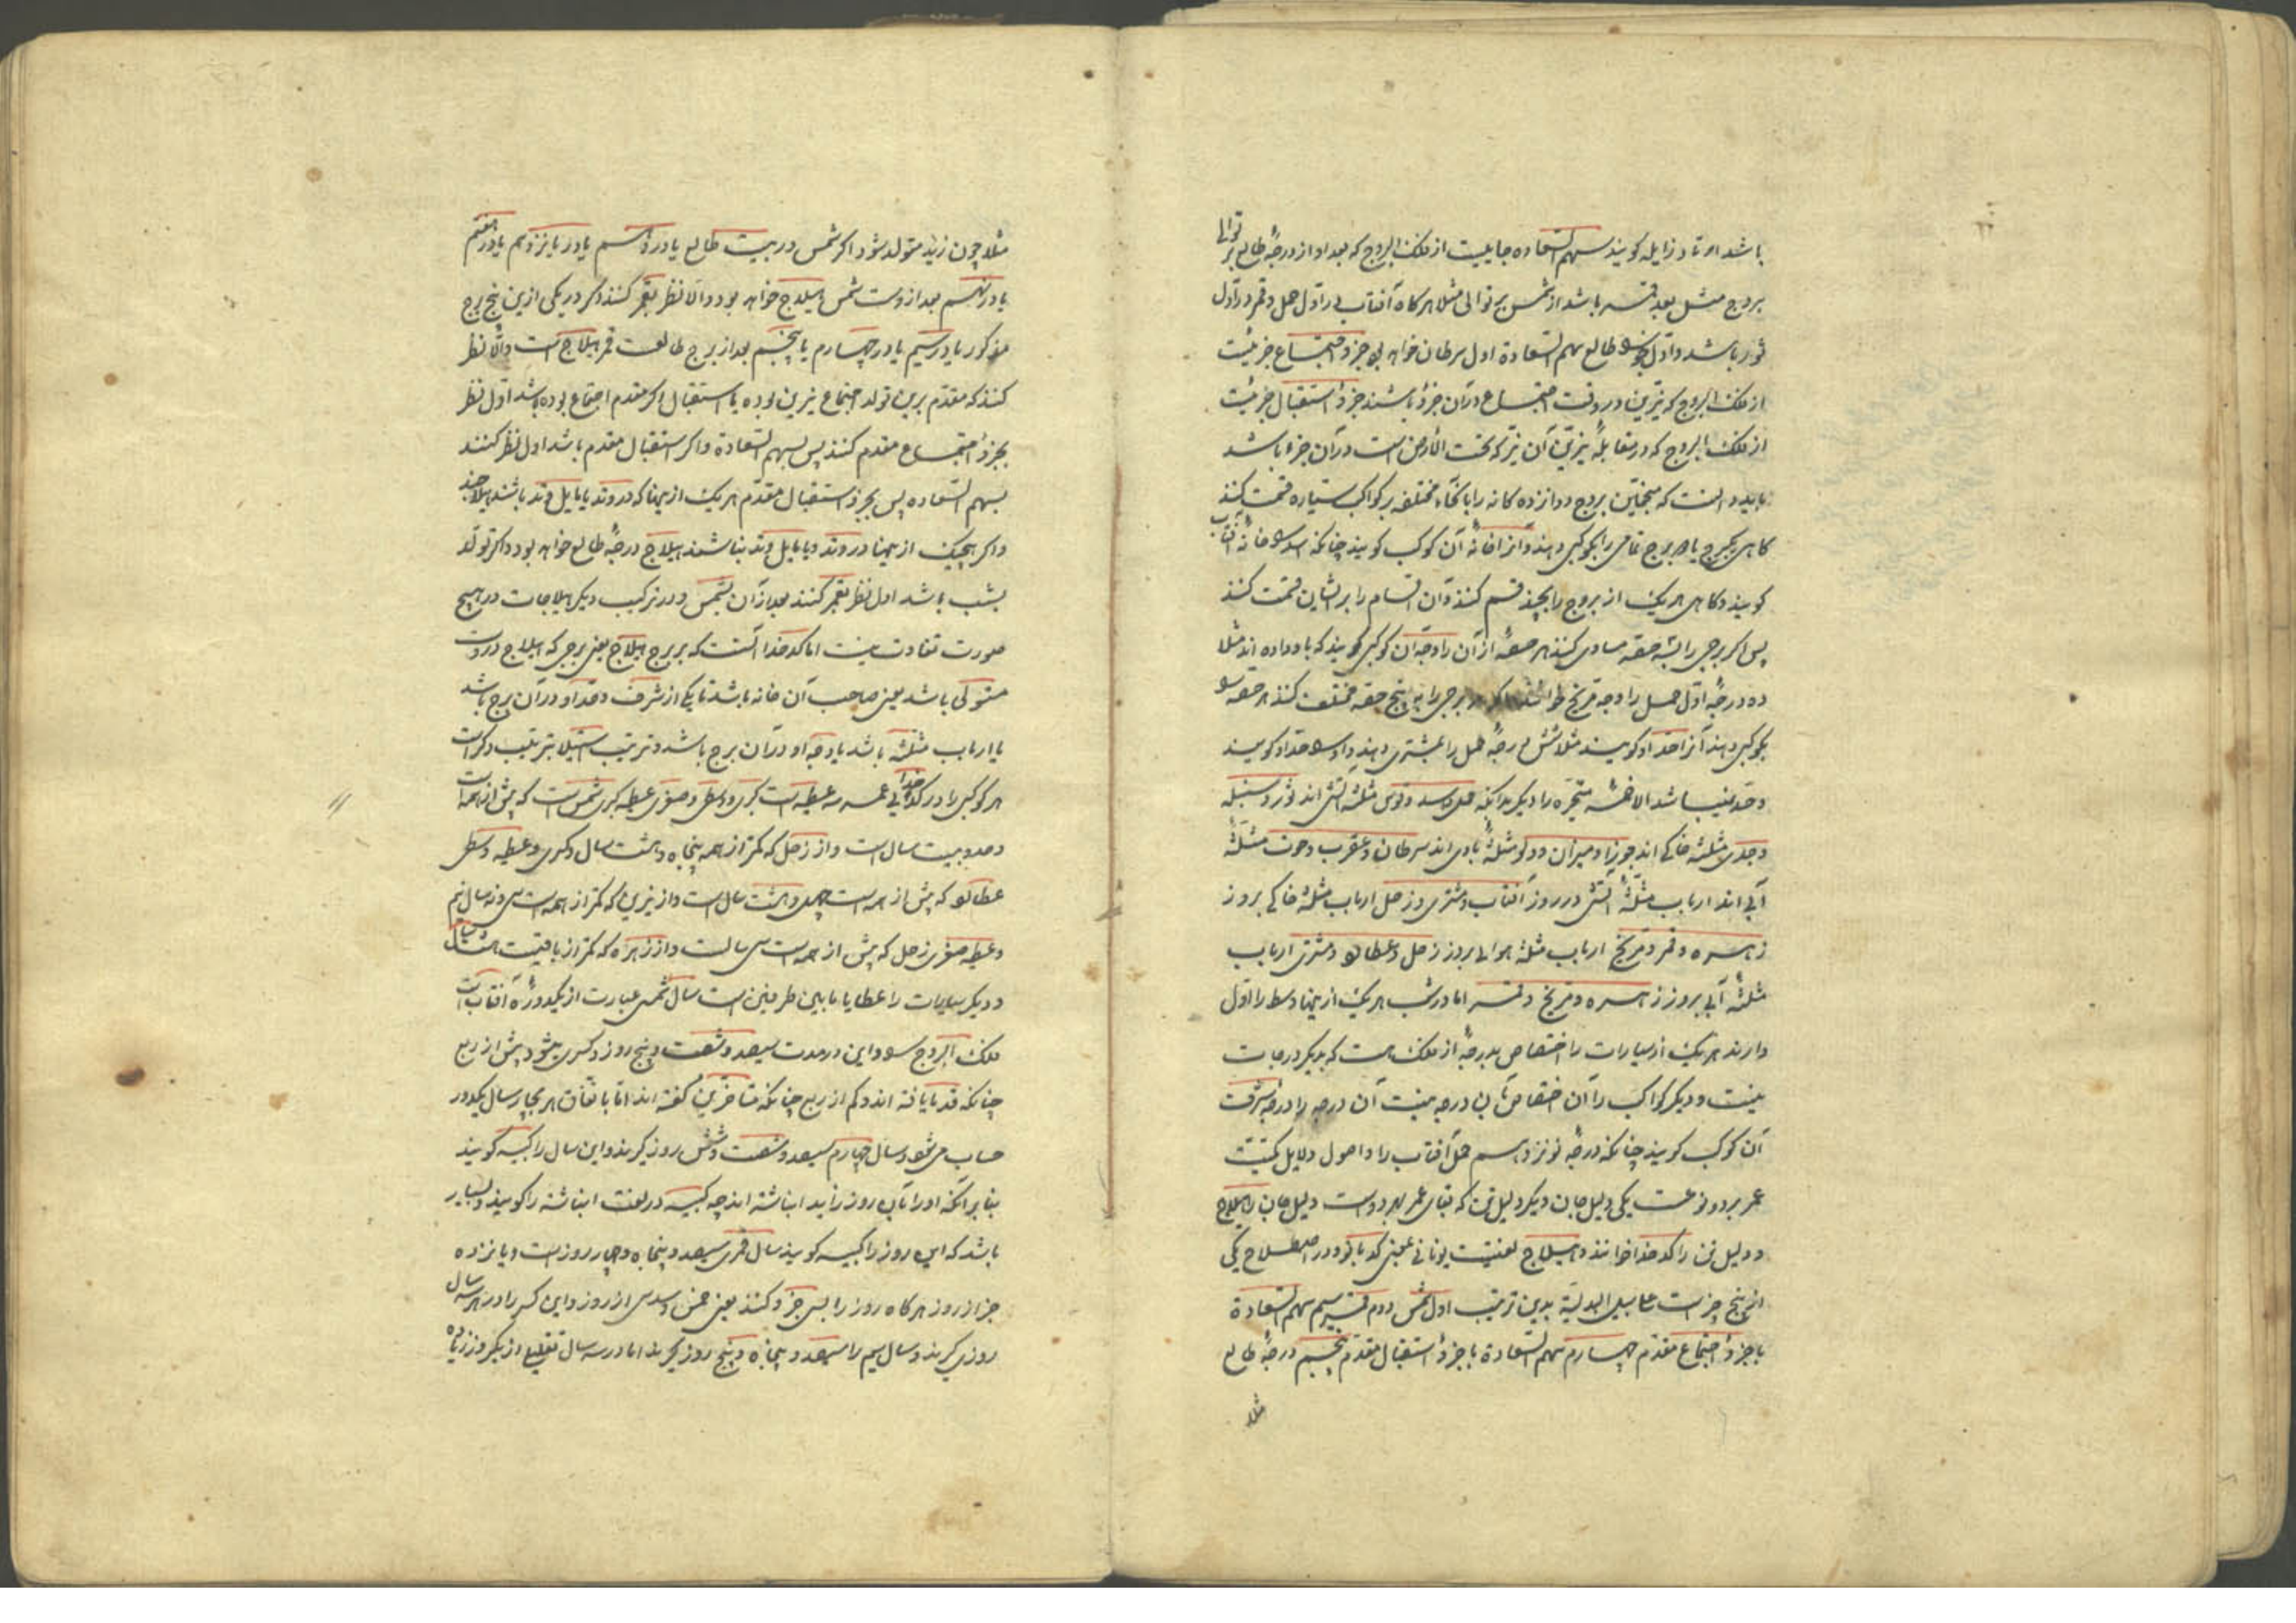 باشد اوتاد زایله کویند سهم السعاده جاییست از فلک البروج که بعد او از درجهٔ طالع بر توالی
بروج مثل بعد قمر باشد از شمس بر توالی مثلا هرکاه آفتاب در اول حمل و قمر در اول
ثور باشد و اول جوزا طالع سهم السعادة اول سرطان خواهد بود جزو اجتماع جزئیست
از فلک البروج که نیرین در وقت اجتماع در آن جزؤ باشند جزؤ استقبال جزئیست
از فلک البروج که در مقابلهٔ نیرین آن نیر که تحت الارض است در آن جزء باشد
باید دانست که منجمین بروج دوازده کانه را بانحاء مختلفه بر کواکب سیاره قسمت کنند
کاهی یکبرج یا دو برج تمامی را بکوکبی دهند و آنرا خانهٔ آن کوکب کویند چنانکه اسد را خانهٔ آفتاب
کویند و کاهی هر یک از بروج را بچند قسم کنند و آن اقسام را بر ایشان قسمت کنند
پس اکر برجی را بسه حصه مساوی کنند هر حصهٔ از آن را وجه آن کوکبی کویند که باو داده اند مثلا
ده درجهٔ اول حمل را وجه مریخ خوانند و اکر هر برجی را به پنج حصه مختلف کنند هر حصه را
بکوکبی دهند آنرا حد او کویند مثلا شش درجهٔ حمل را بمشتری دهند و او را حد او کویند
و حد نمیباشد الا خمسه متحیره را دیکر بدانکه حمل و اسد و قوس مثلثه آتشی اند ثور و سنبله
و جدی مثلثه خاکی اند جوزا و میزان و دلو مثلثهٔ بادی اند سرطان و عقرب و حوت مثلثهٔ
آبی اند ارباب مثلثهٔ آتشی در روز آفتاب و مشتری و زحل ارباب مثلثهٔ خاکی بروز
زهره و قمر و مریخ ارباب مثلثه هوائی بروز زحل و عطارد و مشتری ارباب
مثلثهٔ آبی بروز زهره و مریخ و قمر اما در شب هر یک از اینها وسط را اول
دارند هر یک از سیارات را اختصاص بدرجهٔ از فلک هست که بدیکر درجات
نیست و دیکر کواکب را آن اختصاص بآن درجه نیست آن درجه را درجه شرف
آن کوکب کویند چنانکه درجهٔ نوزدهم حمل آفتاب را و اصول دلایل کمیت
عمر بر دو نوعست یکی دلیل جان و دیکر دلیل تن که بقای عمر بهر دوست دلیل جان را هیلاج
و دلیل تن را کدخدا خوانند و هیلاج لغتیست یونانی بمعنی کدبانو و در اصطلاح یکی
از پنج چیزست علی سبیل البدلیة بدین ترتیب اول شمس دوم قمر سیم سهم السعادة
یا جزؤ اجتماع مقدم چهارم سهم السعادة یا جزؤ استقبال مقدم پنجم درجهٔ طالع
مثلا
مثلا چون زید متولد شود اکر شمس در بیت طالع یا در دهم یا در یازدهم یا در هفتم
یا در نهم بعد از وست شمس هیلاج خواهد بود و الا نظر بقمر کنند اکر در یکی ازین پنج برج
مذکور یا در سیم یا در چهارم یا پنجم بعد از برج طالعست قمر هیلاج است و الا نظر
کنند که مقدم برین تولد اجتماع نیرین بوده یا استقبال اکر مقدم اجتماع بوده باشد اول نظر
بجزؤ اجتماع مقدم کنند پس بسهم السعادة و اکر استقبال مقدم باشد اول نظر کنند
بسهم السعاده پس بجزؤ استقبال مقدم هر یک از اینها که در وتد یا مایل وتد باشند هیلاجند
و اکر هیچیک از اینها در وتد و یا مایل وتد نباشند هیلاج درجهٔ طالع خواهد بود و اکر تولد
بشب باشد اول نظر بقمر کنند بعد از آن بشمس و در ترکیب دیکر هیلاجات در هیچ
صورت تفاوت نیست اما کدخدا آنست که بر برج هیلاج یعنی برجی که هیلاج دروست
مستولی باشد یعنی صاحب آن خانه باشد تا یکی از شرف و حد او در آن برج باشد
یا ارباب مثلثه باشد یا وجه او در آن برج باشد و ترتیب استیلا بترتیب ذکرست
هر کوکبی را در کدخدایی عمر سه عطیه است کبری و وسطی و صغری عطیه کبری شمس است که بیش از همه است
و صد و بیست سال است و از زحل که کمتر از همه پنجاه و هشت سال و کسری و عطیه وسطی
عطارد که بیش از همه است چهل و هشت سال است و از نیرین که کمتر از همه است سی و نه سال نیم
و عطیه صغری زحل که بیش از همه است سی سالست و از زهره که کمتر از باقیست هشت سال
و دیکر سیارات را عطایا مابین طرفین است سال شمسی عبارت از یکدورهٔ آفتاب است
فلک البروج را و این در مدت سیصد و شصت و پنج روز و کسری میشود بیش از ربع
چنانکه قدما یافته اند و کم از ربع چنانکه متاخرین کفته اند اما باتفاق هر چهار سال یکدور
حساب می شود و سال چهارم سیصد و شصت و شش روز کیرند و این سال را کبیسه کویند
بنابر آنکه او را بآن روز زاید انباشته اند چه کبیسه در لغت انباشته را کویند و بسیار
باشد که این روز را کبیسه کویند سال قمری سیصد و پنجاه و چهار روزست و یازده
جزء از روز هرکاه روز را بسی جزؤ کنند یعنی خمس و سدس از روز و این کسر را در هر سه سال
روزی کیرند و سال سیم را سیصد و پنجاه و پنج روز کیرند اما در سه سال بقلیلی از یکروز زیاده